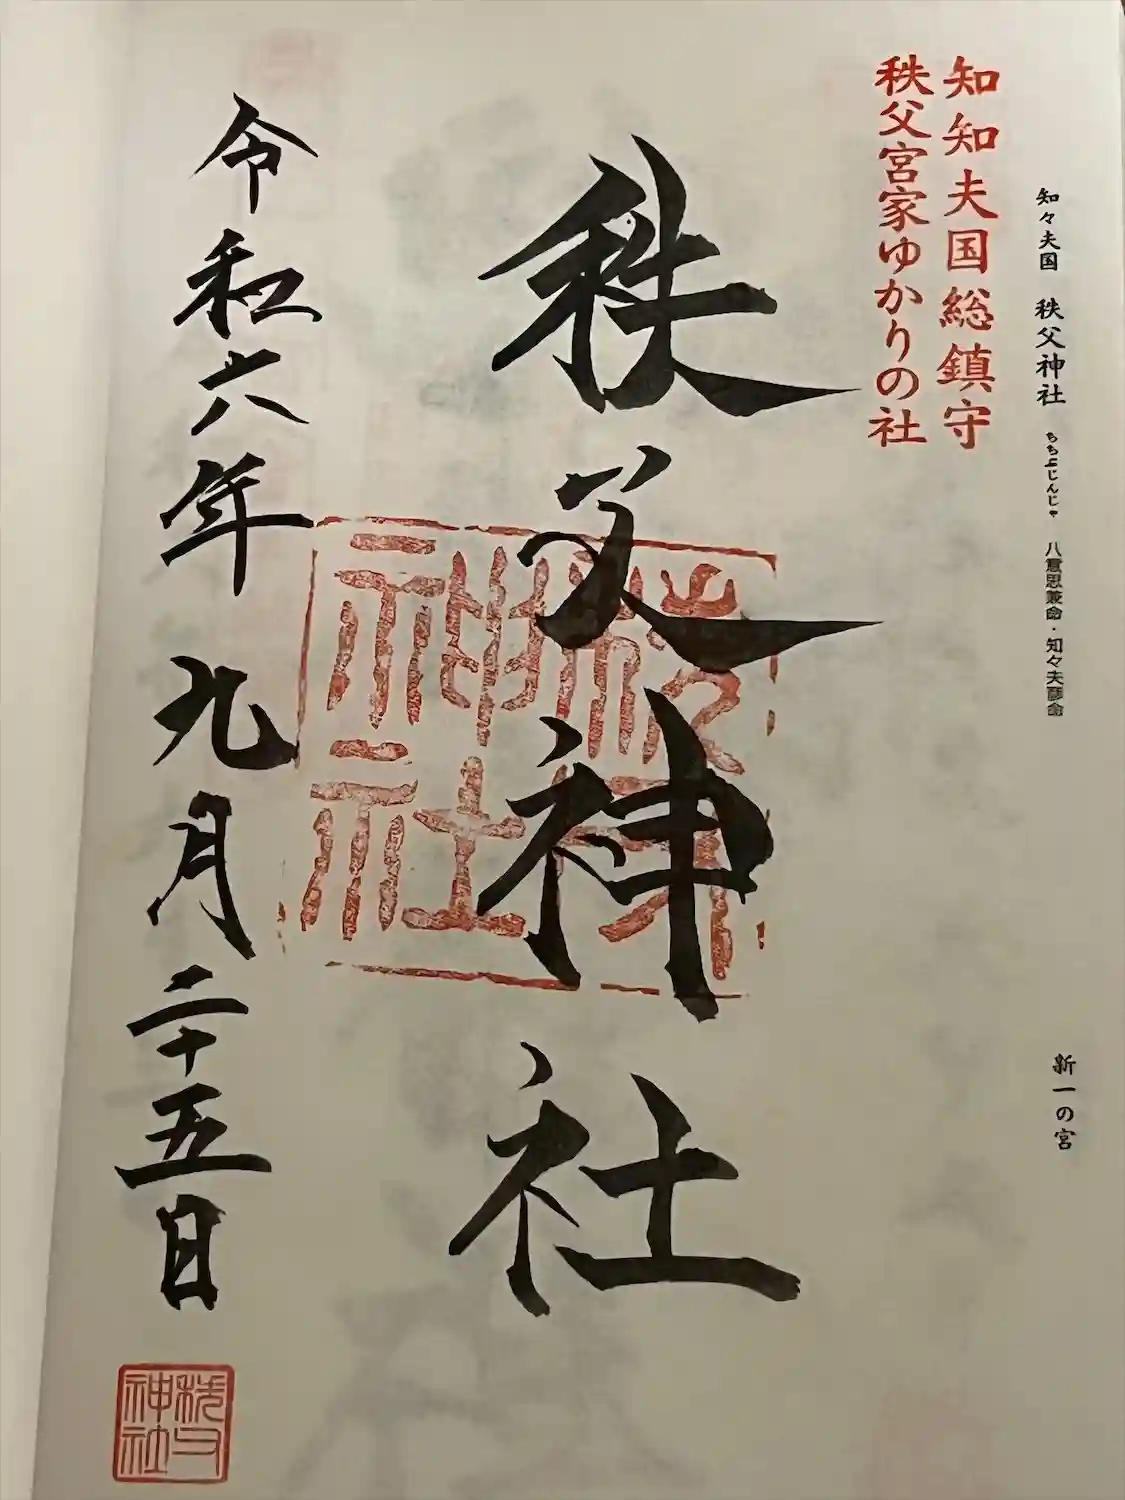 知々夫国 秩父神社 ちちぶじんじゃ 八意思兼命・知々夫彦命 新一の宮
知知夫国総鎮守
秩父宮家ゆかりの社
秩父神社
秩父神社
令和六年九月二十五日
秩父神社